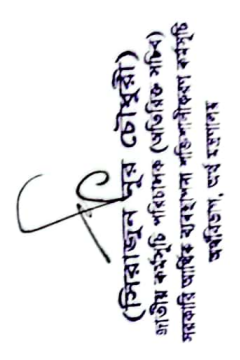 (সিরাজুন নূর চৌধুরী)
জাতীয় কর্মসূচি পরিচালক (অতিরিক্ত সচিব)
সরকারি আর্থিক ব্যবস্থাপনা শক্তিশালীকরণ কর্মসূচি
অর্থবিভাগ, অর্থ মন্ত্রণালয়